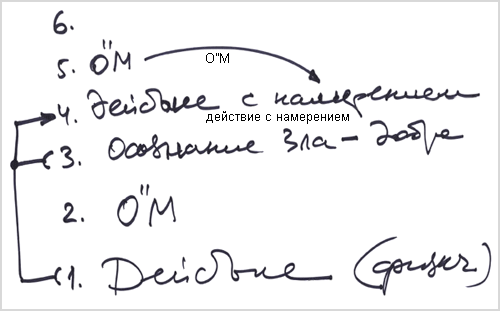 6.
5. О"М О"М
4. Действие с намерением
действие с намерением
3. Осознание Зла - Добра
2. О"М
1. Действие (физич)